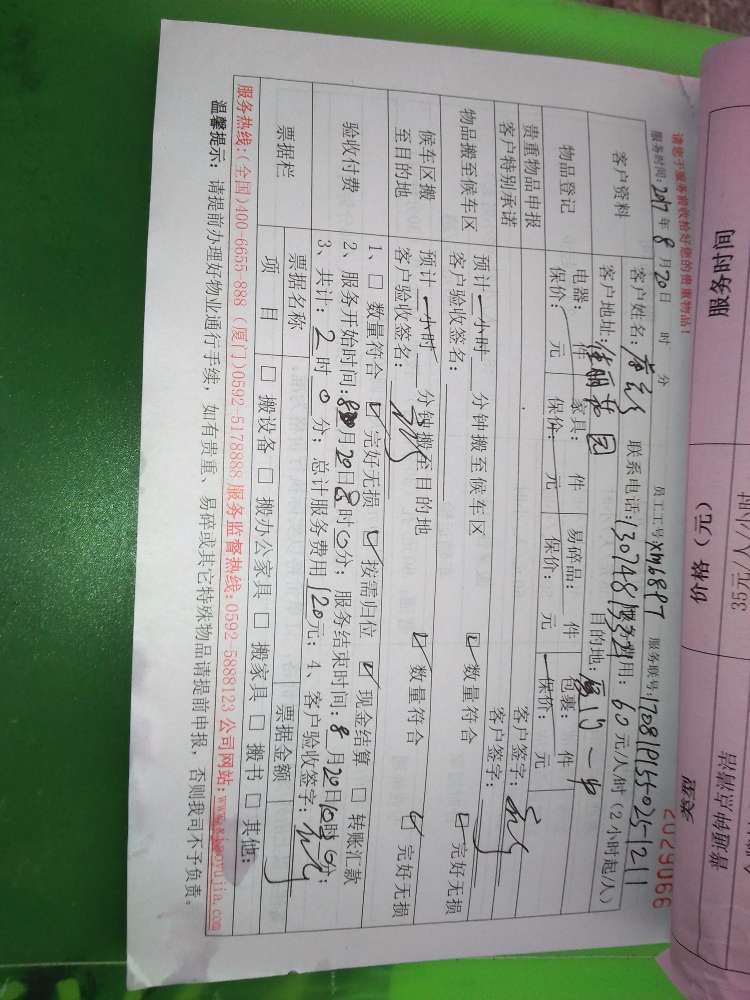 请您于服务前收拾好您的贵重物品!
2029066
服务时间: 2017年 8月 20日 时 分 员工工号 xm6897 服务联号:
客户资料
客户姓名: 联系电话: 服务费用: 60元/人/时 (2小时起/人)
客户地址: 佳丽花园 目的地: 厦门一中
物品登记
电器: 件 家具: 件 易碎品: 件 包裹: 件
保价: 元 保价: 元 保价: 元 保价: 元
贵重物品申报
客户特别承诺
客户签字:
客户签字:
物品搬至候车区
预计一小时 分钟搬至候车区 ☑ 数量符合 ☑ 完好无损
客户验收签名:
候车区搬至目的地
预计一小时 分钟搬至目的地 ☑ 数量符合 ☑ 完好无损
客户验收签名:
验收付费
1、□ 数量符合 ☑ 完好无损 ☑ 按需归位 ☑ 现金结算 □ 转账汇款
2、服务开始时间: 8月20日8时0分; 服务结束时间: 8月20日10时0分;
3、共计: 2时0分; 总计服务费用120元; 4、客户验收签字:
票据栏
票据名称 票据金额
项目 □ 搬设备 □ 搬办公家具 □ 搬家具 □ 搬书 □ 其他:
服务热线:(全国)400-6655-888 (厦门)0592-5178888 服务监督热线:0592-5888123 公司网站:
温馨提示: 请提前办理好物业通行手续, 如有贵重、易碎或其它特殊物品请提前申报, 否则我司不予负责。
服务时间
价格(元)
35元/人/小时
类型
普通钟点清洁